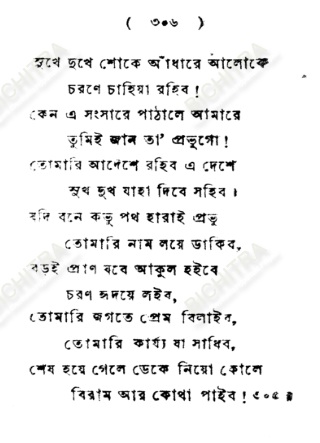 ( ৩০৬ )
সুখে দুখে শোকে আঁধারে আলোকে
চরণে চাহিয়া রহিব !
কেন এ সংসারে পাঠালে আমারে
তুমিই জান তা’ প্রভুগো !
তোমারি আদেশে রহিব এ দেশে
সুখ দুখ যাহা দিবে সহিব ।
যদি বনে কভু পথ হারাই প্রভু
তোমারি নাম লয়ে ডাকিব,
বড়ই প্রাণ যবে আকুল হইবে
চরণ হৃদয়ে লইব,
তোমারি জগতে প্রেম বিলাইব,
তোমারি কার্য্য যা সাধিব,
শেষ হয়ে গেলে ডেকে নিয়ো কোলে
বিরাম আর কোথা পাইব ! ৫০৫ ॥
BICHITRA
BICHITRA
BICHITRA
BICHITRA